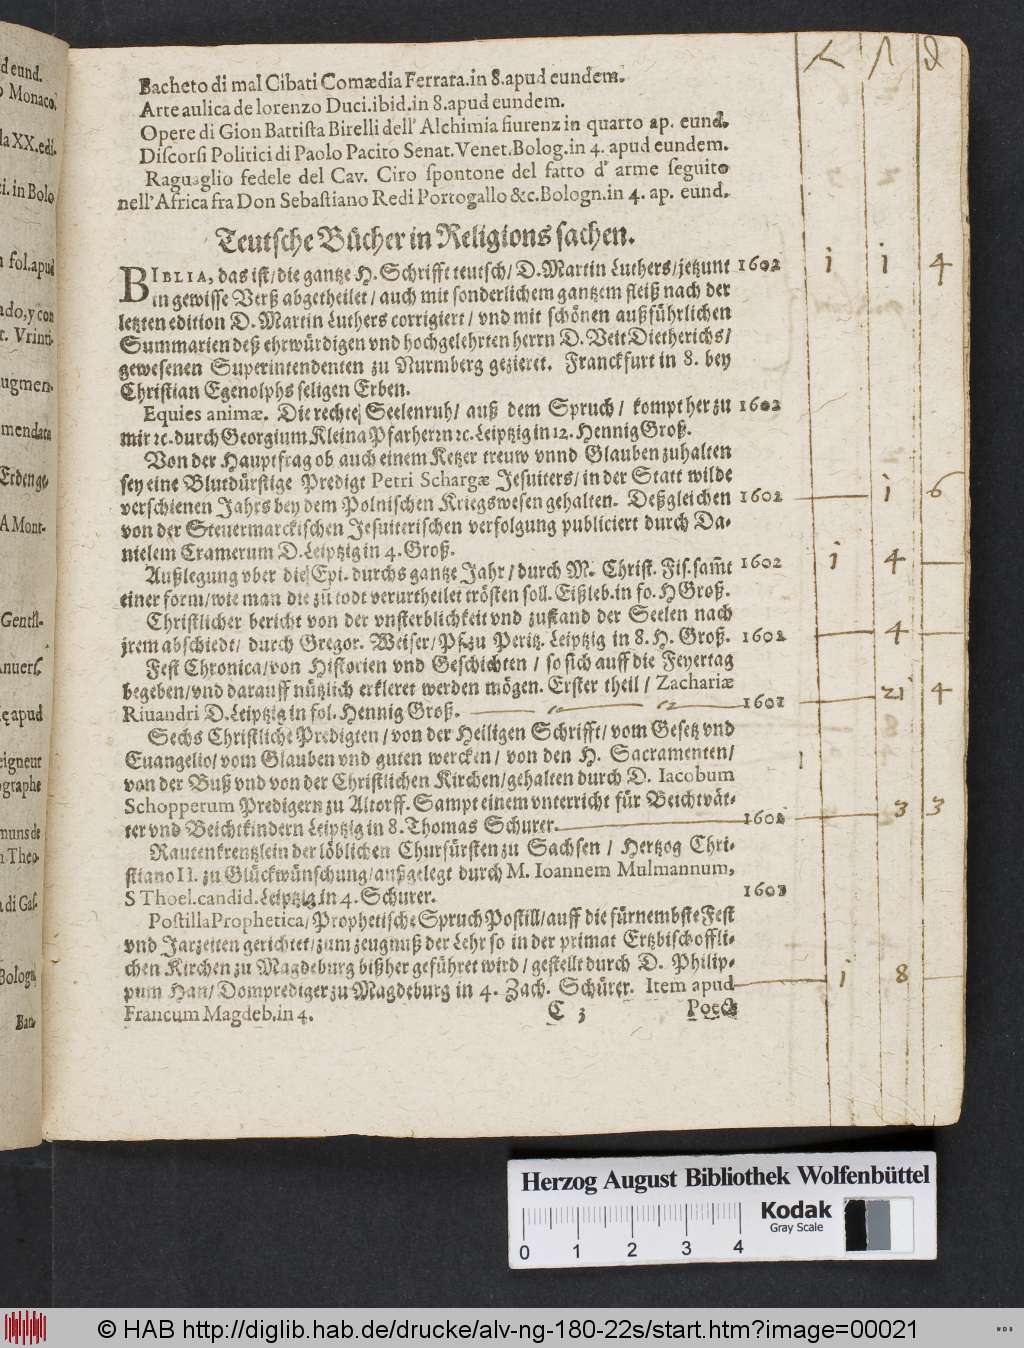 d eund.
o Monaco.
la XX. edi-
ci. in Bolo
n fol. apud
ado, y con
r. Vrini-
ugmen-
mendata
Erdenge-
A Mont-
Gentil-
Anuers.
ę apud
eigneur
ographe
muns de
n Theo-
a di Gas.
Bologn.
Bati-
Bacheto di mal Cibati Comædia Ferrara. in 8. apud eundem.
Arte aulica de lorenzo Duci. ibid. in 8. apud eundem.
Opere di Gion Battiſta Birelli dell' Alchimia fiurenz in quarto ap. eund.
Diſcorſi Politici di Paolo Pacito Senat. Venet. Bolog. in 4. apud eundem.
Raguaglio fedele del Cav. Ciro ſpontone del fatto d' arme ſeguito
nell' Africa fra Don Sebaſtiano Redi Portogallo &c. Bologn. in 4. ap. eund.
Teutſche Bücher in Religions ſachen.
BIBLIA, das iſt/ die gantze H. Schrifft teutſch/ D. Martin Luthers/ jetzunt 1602 1 1 4
in gewiſſe Verß abgetheilet/ auch mit ſonderlichem gantzem fleiß nach der
letzten edition D. Martin Luthers corrigiert/ vnd mit ſchönen außführlichen
Summarien deß ehrwürdigen vnd hochgelehrten herrn D. Veit Dietherichs/
geweſenen Superintendenten zu Nurmberg gezieret. Franckfurt in 8. bey
Chriſtian Egenolphs ſeligen Erben.
Equies animæ. Die rechte Seelenruh/ auß dem Spruch/ kompt her zu 1602
mir ꝛc. durch Georgium Kleina Pfarherrn ꝛc. Leiptzig in 12. Hennig Groß.
Von der Hauptfrag ob auch einem Ketzer treuw vnnd Glauben zuhalten
ſey eine Blutdürſtige Predigt Petri Schargæ Jeſuiters/ in der Statt wilde
verſchienen Jahrs bey dem Polniſchen Kriegsweſen gehalten. Deßgleichen 1602 1 6
von der Steuermarckiſchen Jeſuiteriſchen verfolgung publiciert durch Da-
nielem Cramerum D. Leiptzig in 4. Groß.
Außlegung vber die Epi. durchs gantze Jahr/ durch M. Chriſt. Fiſ. ſam̃t 1602 1 4
einer form/ wie man die zũ todt verurtheilet tröſten ſoll. Eißleb. in fo. H Groß.
Chriſtlicher bericht von der vnſterblichkeit vnd zuſtand der Seelen nach
jrem abſchiedt/ durch Gregor. Weiſer/ Pf. zu Peritz. Leiptzig in 8. H. Groß. 1602 4
Feſt Chronica/ von Hiſtorien vnd Geſchichten/ ſo ſich auff die Feyertag
begeben/ vnd darauff nützlich erkleret werden mögen. Erſter theil/ Zachariæ
Riuandri D. Leiptzig in fol. Hennig Groß. 1602 21 4
Sechs Chriſtliche Predigten/ von der Heiligen Schrifft/ vom Geſetz vnd
Euangelio/ vom Glauben vnd guten wercken/ von den H. Sacramenten/
von der Buß vnd von der Chriſtlichen Kirchen/ gehalten durch D. Iacobum
Schopperum Predigern zu Altorff. Sampt einem vnterricht für Beichtvät-
ter vnd Beichtkindern Leiptzig in 8. Thomas Schurer. 1602 3 3
Rautenkrentzlein der löblichen Churfürſten zu Sachſen/ Hertzog Chri-
ſtiano II. zu Glückwünſchung/ außgelegt durch M. Ioannem Mulmannum,
S Thoel. candid. Leiptzig in 4. Schurer. 1602
Poſtilla Prophetica/ Prophetiſche Spruch Poſtill/ auff die fürnembſte Feſt
vnd Jarzeiten gerichtet/ zum zeugnuß der Lehr ſo in der primat Ertzbiſchoffli-
chen Kirchen zu Magdeburg bißher geführet wird/ geſtellt durch D. Philip-
pum Han/ Domprediger zu Magdeburg in 4. Zach. Schürer. Item apud 1 8
Francum Magdeb. in 4.
C 3 Poeck
Herzog August Bibliothek Wolfenbüttel
Kodak
Gray Scale
0 1 2 3 4
© HAB http://diglib.hab.de/drucke/alv-ng-180-22s/start.htm?image=00021